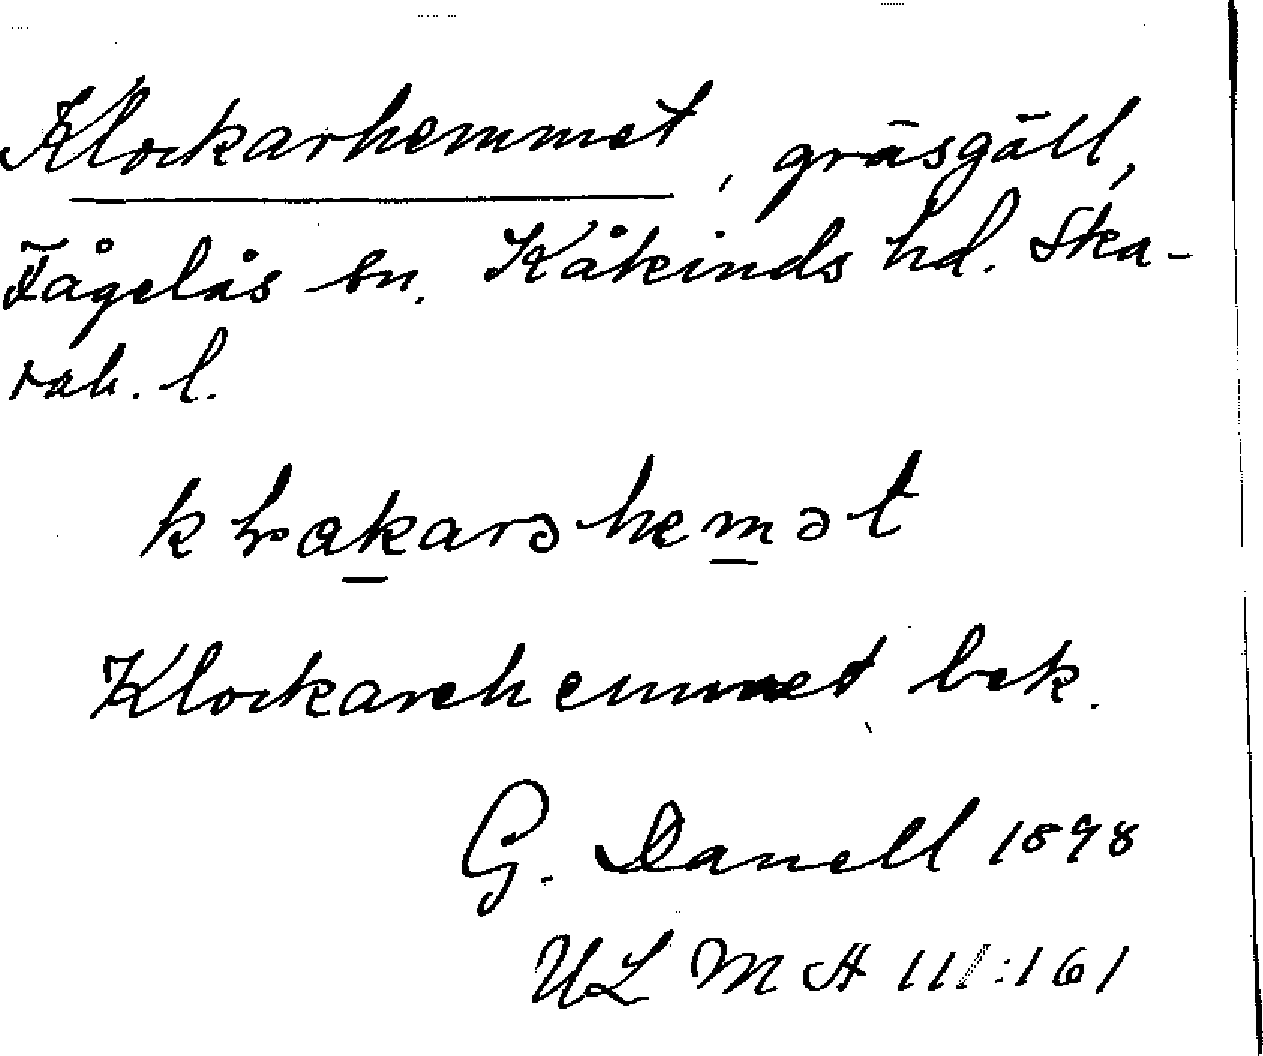 Klockarhemmet, gräsgäll,
Fågelås sn. Kåkinds hd. Ska-
rab. l.
kḷakarəhemət
Klockarehemmet bek.
G. Danell 1898
ULMA 111:161